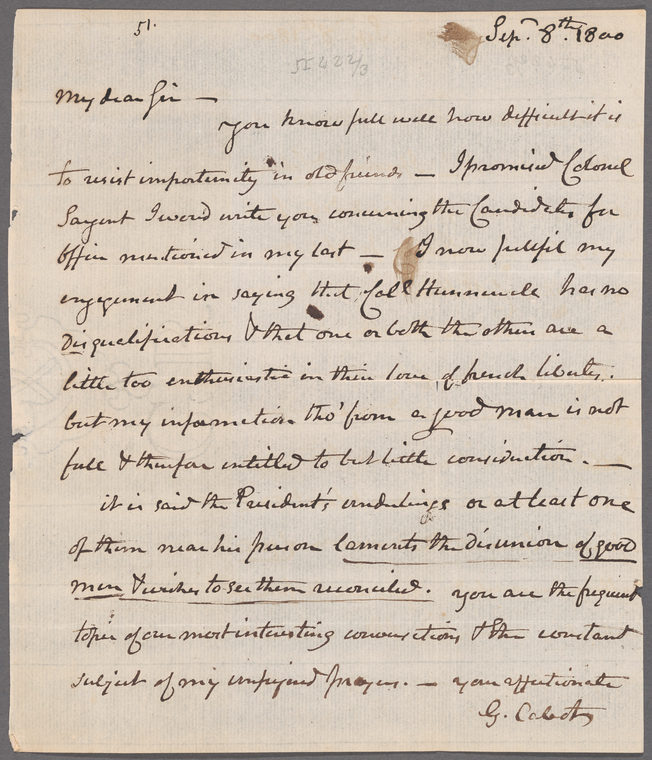 51.
Sepr. 8th. 1800
51422/3
My dear Sir —
you know full well how difficult it is
to resist importunity in old friends — I promised Colonel
Sargent I would write you concerning the Candidates for
office mentioned in my last — I now fulfil my
engagement in saying that Coll Hunnewell has no
Disqualifications & that one or both the others are a
little too enthusiastic in their love of french liberty.
but my information tho' from a good man is not
full & therefore entitled to but little consideration. —
it is said the President's underlings or at least one
of them near his person laments the disunion of good
men & wishes to see them reconciled. you are the frequent
topic of our most interesting conversations & the constant
subject of my unfeigned prayers. — your affectionate
G. Cabot